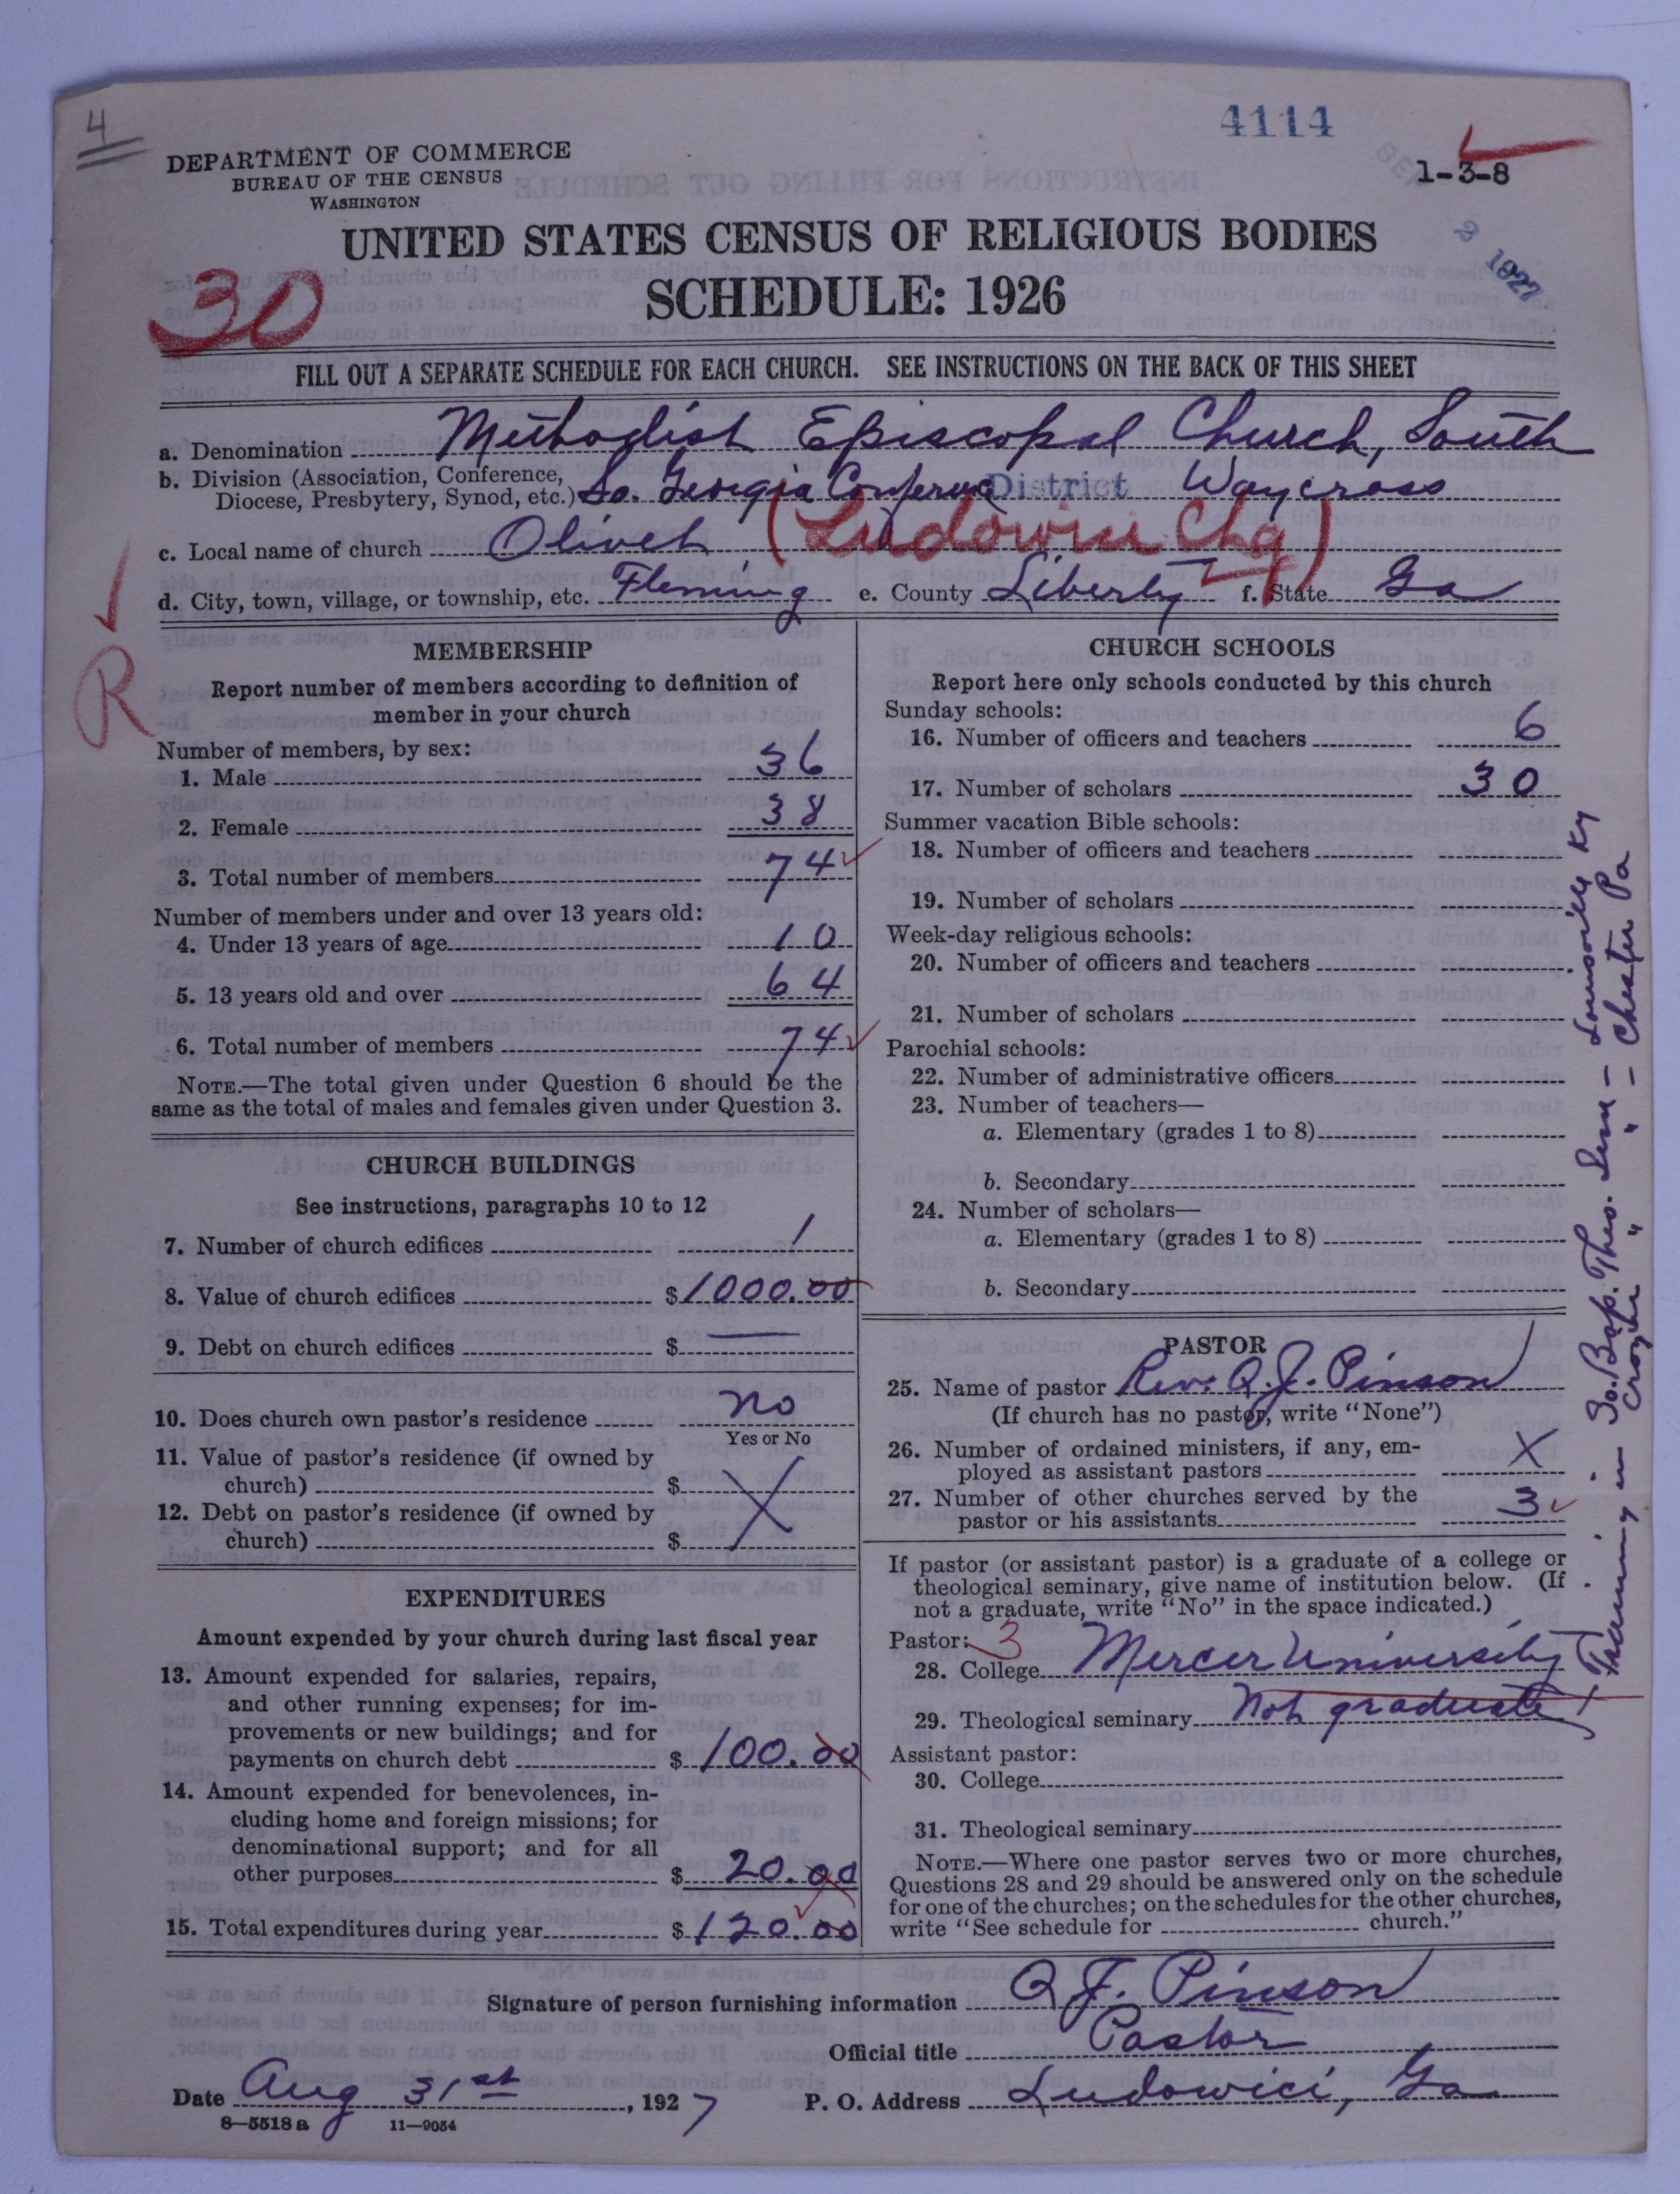 4
4114
1-3-8
SEP 2 1927
DEPARTMENT OF COMMERCE
BUREAU OF THE CENSUS
WASHINGTON
UNITED STATES CENSUS OF RELIGIOUS BODIES
SCHEDULE: 1926
30
FILL OUT A SEPARATE SCHEDULE FOR EACH CHURCH. SEE INSTRUCTIONS ON THE BACK OF THIS SHEET
a. Denomination Methodist Episcopal Church, South
b. Division (Association, Conference,
Diocese, Presbytery, Synod, etc.) So. Georgia Conference District Waycross
c. Local name of church Olivet (Ludowici Chg)
d. City, town, village, or township, etc. Fleming e. County Liberty f. State Ga
R
MEMBERSHIP
Report number of members according to definition of
member in your church
Number of members, by sex:
1. Male 36
2. Female 38
3. Total number of members 74
Number of members under and over 13 years old:
4. Under 13 years of age 10
5. 13 years old and over 64
6. Total number of members 74
NOTE.—The total given under Question 6 should be the
same as the total of males and females given under Question 3.
CHURCH BUILDINGS
See instructions, paragraphs 10 to 12
7. Number of church edifices 1
8. Value of church edifices $1000.00
9. Debt on church edifices $ —
10. Does church own pastor's residence no
Yes or No
11. Value of pastor's residence (if owned by
church) $
12. Debt on pastor's residence (if owned by
church) $ X
EXPENDITURES
Amount expended by your church during last fiscal year
13. Amount expended for salaries, repairs,
and other running expenses; for im-
provements or new buildings; and for
payments on church debt $ 100.00
14. Amount expended for benevolences, in-
cluding home and foreign missions; for
denominational support; and for all
other purposes $ 20.00
15. Total expenditures during year $ 120.00
CHURCH SCHOOLS
Report here only schools conducted by this church
Sunday schools:
16. Number of officers and teachers 6
17. Number of scholars 30
Summer vacation Bible schools:
18. Number of officers and teachers
19. Number of scholars
Week-day religious schools:
20. Number of officers and teachers
21. Number of scholars
Parochial schools:
22. Number of administrative officers
23. Number of teachers—
a. Elementary (grades 1 to 8)
b. Secondary
24. Number of scholars—
a. Elementary (grades 1 to 8)
b. Secondary
PASTOR
25. Name of pastor Rev. Q. J. Pinson
(If church has no pastor, write "None")
26. Number of ordained ministers, if any, em-
ployed as assistant pastors X
27. Number of other churches served by the
pastor or his assistants 3
If pastor (or assistant pastor) is a graduate of a college or
theological seminary, give name of institution below. (If
not a graduate, write "No" in the space indicated.)
Pastor: 3
28. College Mercer University
29. Theological seminary Not graduate
Assistant pastor:
30. College
31. Theological seminary
NOTE.—Where one pastor serves two or more churches,
Questions 28 and 29 should be answered only on the schedule
for one of the churches; on the schedules for the other churches,
write "See schedule for church."
Training in So. Bap. Theo. Sem - Louisville Ky
Crozier " " - Chester Pa
Signature of person furnishing information Q J. Pinson
Official title Pastor
Date Aug 31st, 1927 P. O. Address Ludowici, Ga
8—5518 a 11—9054